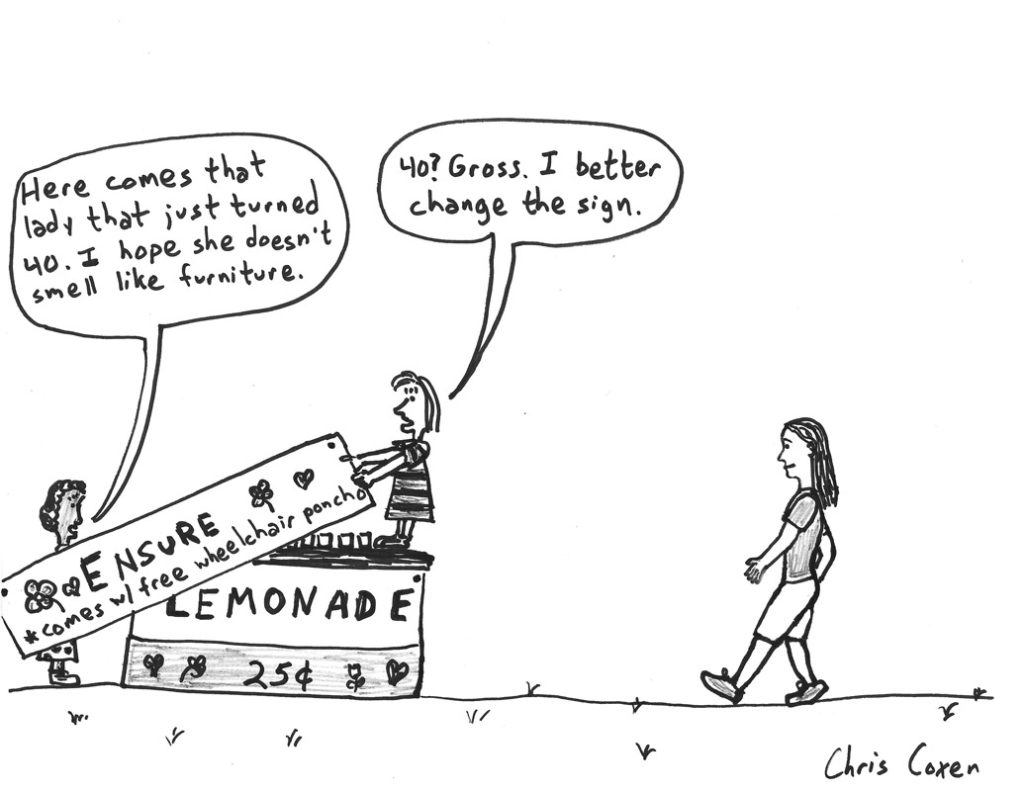 Here comes that
lady that just turned
40. I hope she doesn't
smell like furniture.
40? Gross. I better
change the sign.
ENSURE
*comes w/ free wheelchair poncho
LEMONADE
25¢
Chris Coxen